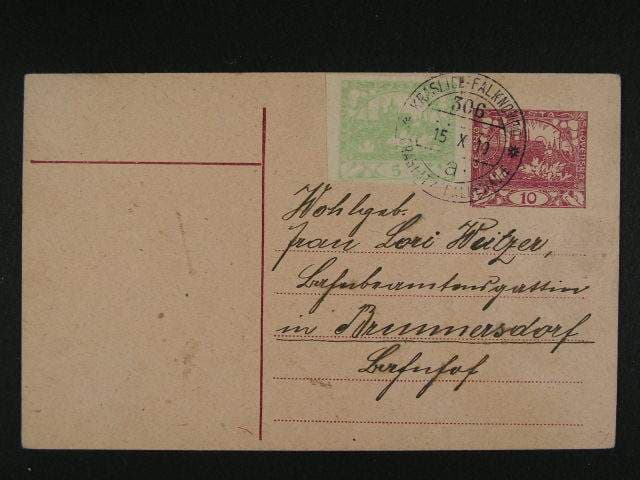 KRASLICE-FALKNOV
306
15 X 19
a
5
10
Wohlgeb.
Frau Lori Weitzer,
Bahnbeamtensgattin
in Brunnersdorf
Bahnhof